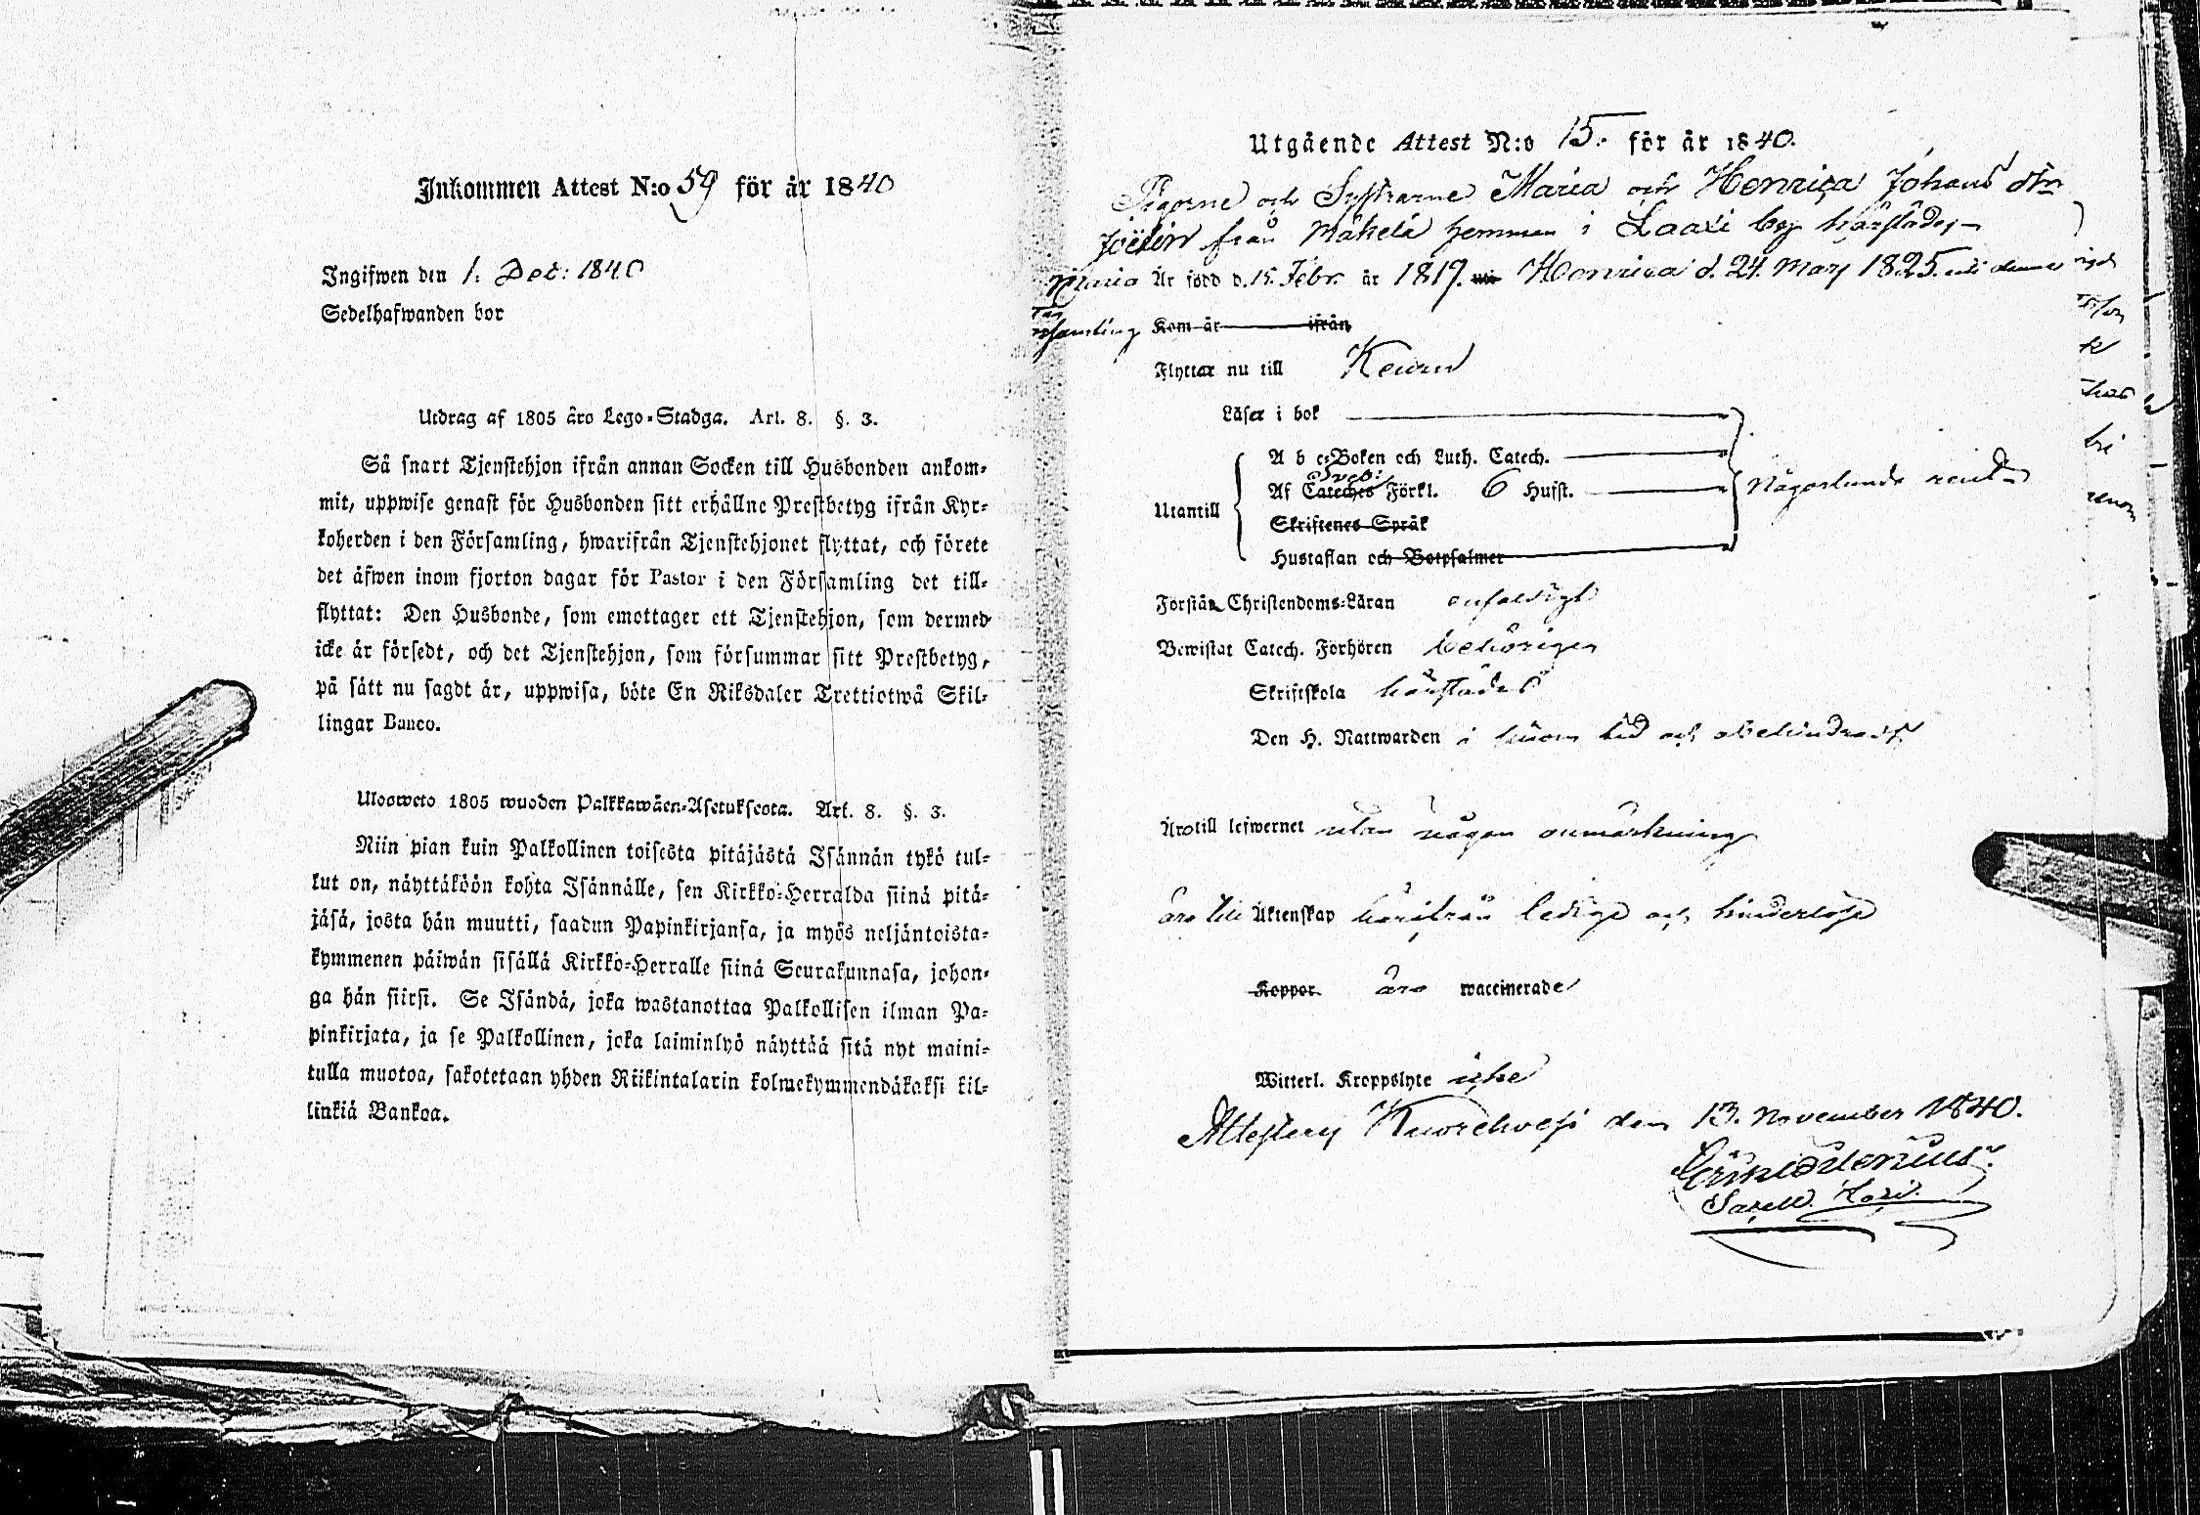 Inkommen Attest N:o 59 för år 1840
Ingifwen den 1. Dec: 1840
Sedelhafwanden bor
Utdrag af 1805 års Lego-Stadga. Art. 8. §. 3.
Så snart Tjenstehjon ifrån annan Socken till Husbonden ankom-
mit, uppwise genast för Husbonden sitt erhållne Prestbetyg ifrån Kyr-
koherden i den Församling, hwarifrån Tjenstehjonet flyttat, och förete
det äfwen inom fjorton dagar för Pastor i den Församling det till-
flyttat: Den Husbonde, som emottager ett Tjenstehjon, som dermed
icke är försedt, och det Tjenstehjon, som försummar sitt Prestbetyg,
på sätt nu sagdt är, uppwisa, böte En Riksdaler Trettiotwå Skil-
lingar Banco.
Ulosweto 1805 wuoden Palkkawäen-Asetuksesta. Art. 8. §. 3.
Niin pian kuin Palkollinen toisesta pitäjästä Isännän tykö tul-
lut on, näyttäköön kohta Isännälle, sen Kirkko-Herralda siinä pitä-
jäsä, josta hän muutti, saadun Papinkirjansa, ja myös neljäntoista-
kymmenen päiwän sisällä Kirkko-Herralle siinä Seurakunnasa, johon-
ga hän siirsi. Se Isändä, joka wastanottaa Palkollisen ilman Pa-
pinkirjata, ja se Palkollinen, joka laiminlyö näyttää sitä nyt maini-
tulla muotoa, sakotetaan yhden Riikintalarin kolmekymmendäkaksi kil-
linkiä Bankoa.
Utgående Attest N:o 15. för år 1840.
Pigorne och Systrarne Maria och Henrica Johans dtr
från Mäkelä hemman i Laaxi by härstädes
Maria Är född d. 15. Febr. år 1819. Henrica d. 24. Mars 1825. uti denna
församling Kom år ifrån
Flyttar nu till Keuru
Läser i bok
A b c-Boken och Luth. Catech.
Sveb:
Utantill Af Cateches Förkl. 6 Hufst. Någorlunda rent
Skriftenes Språk
Hustaflan och Botpsalmer
Förstår Christendoms-Läran enfaldigt
Bewistat Catech. Förhören behörigen
Skriftskola härstädes
Den H. Nattwarden i laga tid och obehindradt
Äro till lefwernet utan någon anmärkning
äro till Äktenskap härifrån ledige och hinderlöse
Koppor äro waccinerade
Witterl. Kroppslyte icke
Attesterar Kuorehvesi den 13. November 1840.